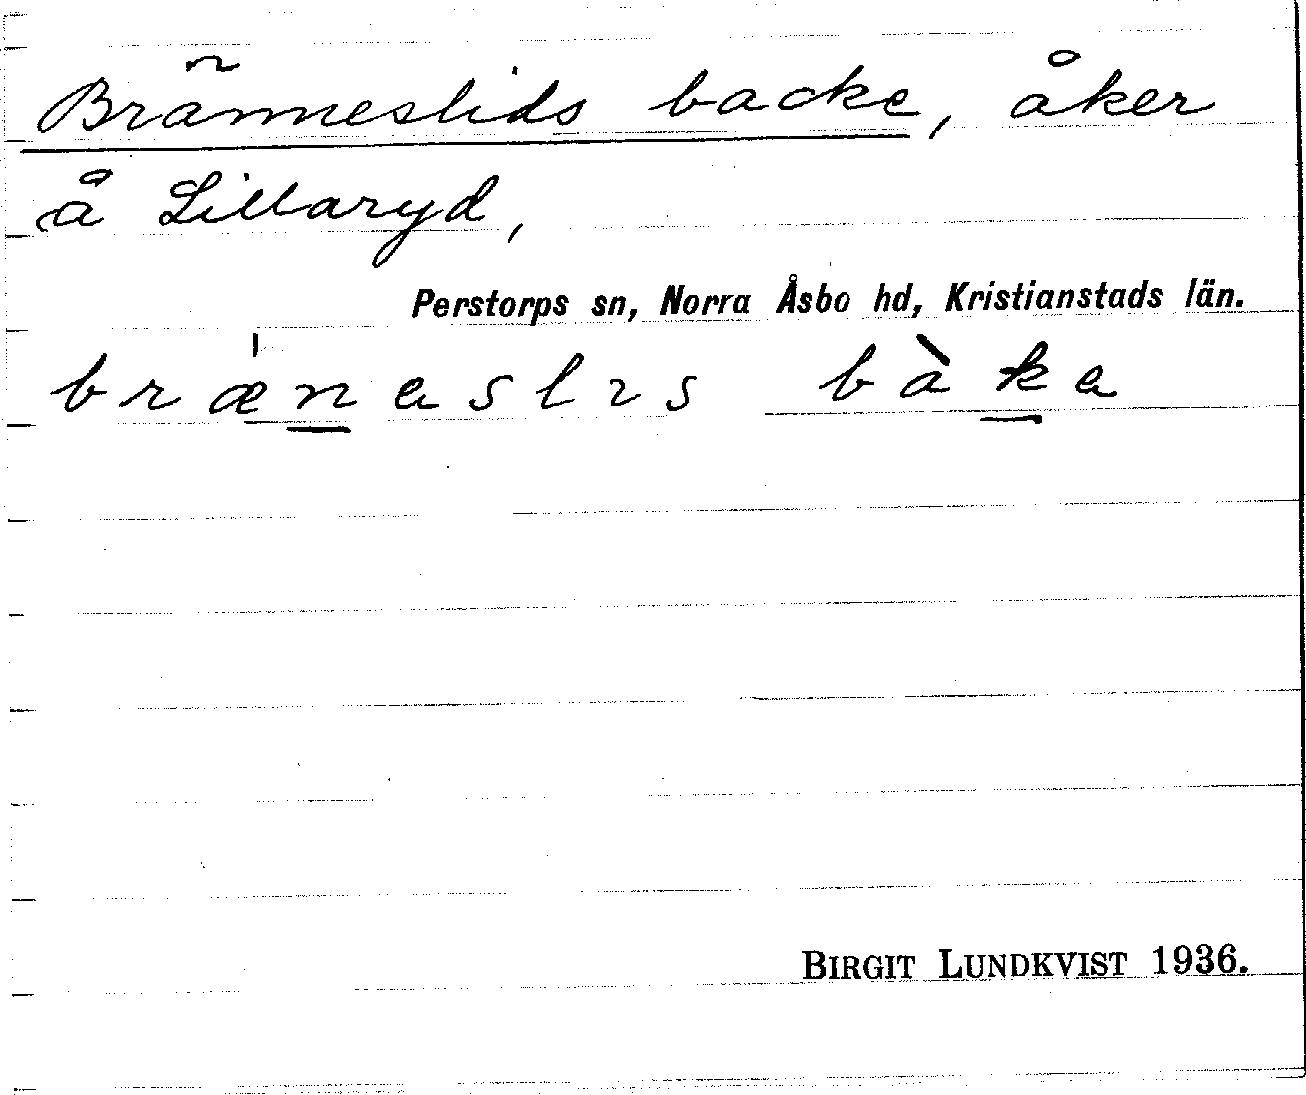 Bränneslids backe, åker
å Lillaryd,
Perstorps sn, Norra Åsbo hd, Kristianstads län.
bræ̍n̲aslɩs bàk̲a
BIRGIT LUNDKVIST 1936.